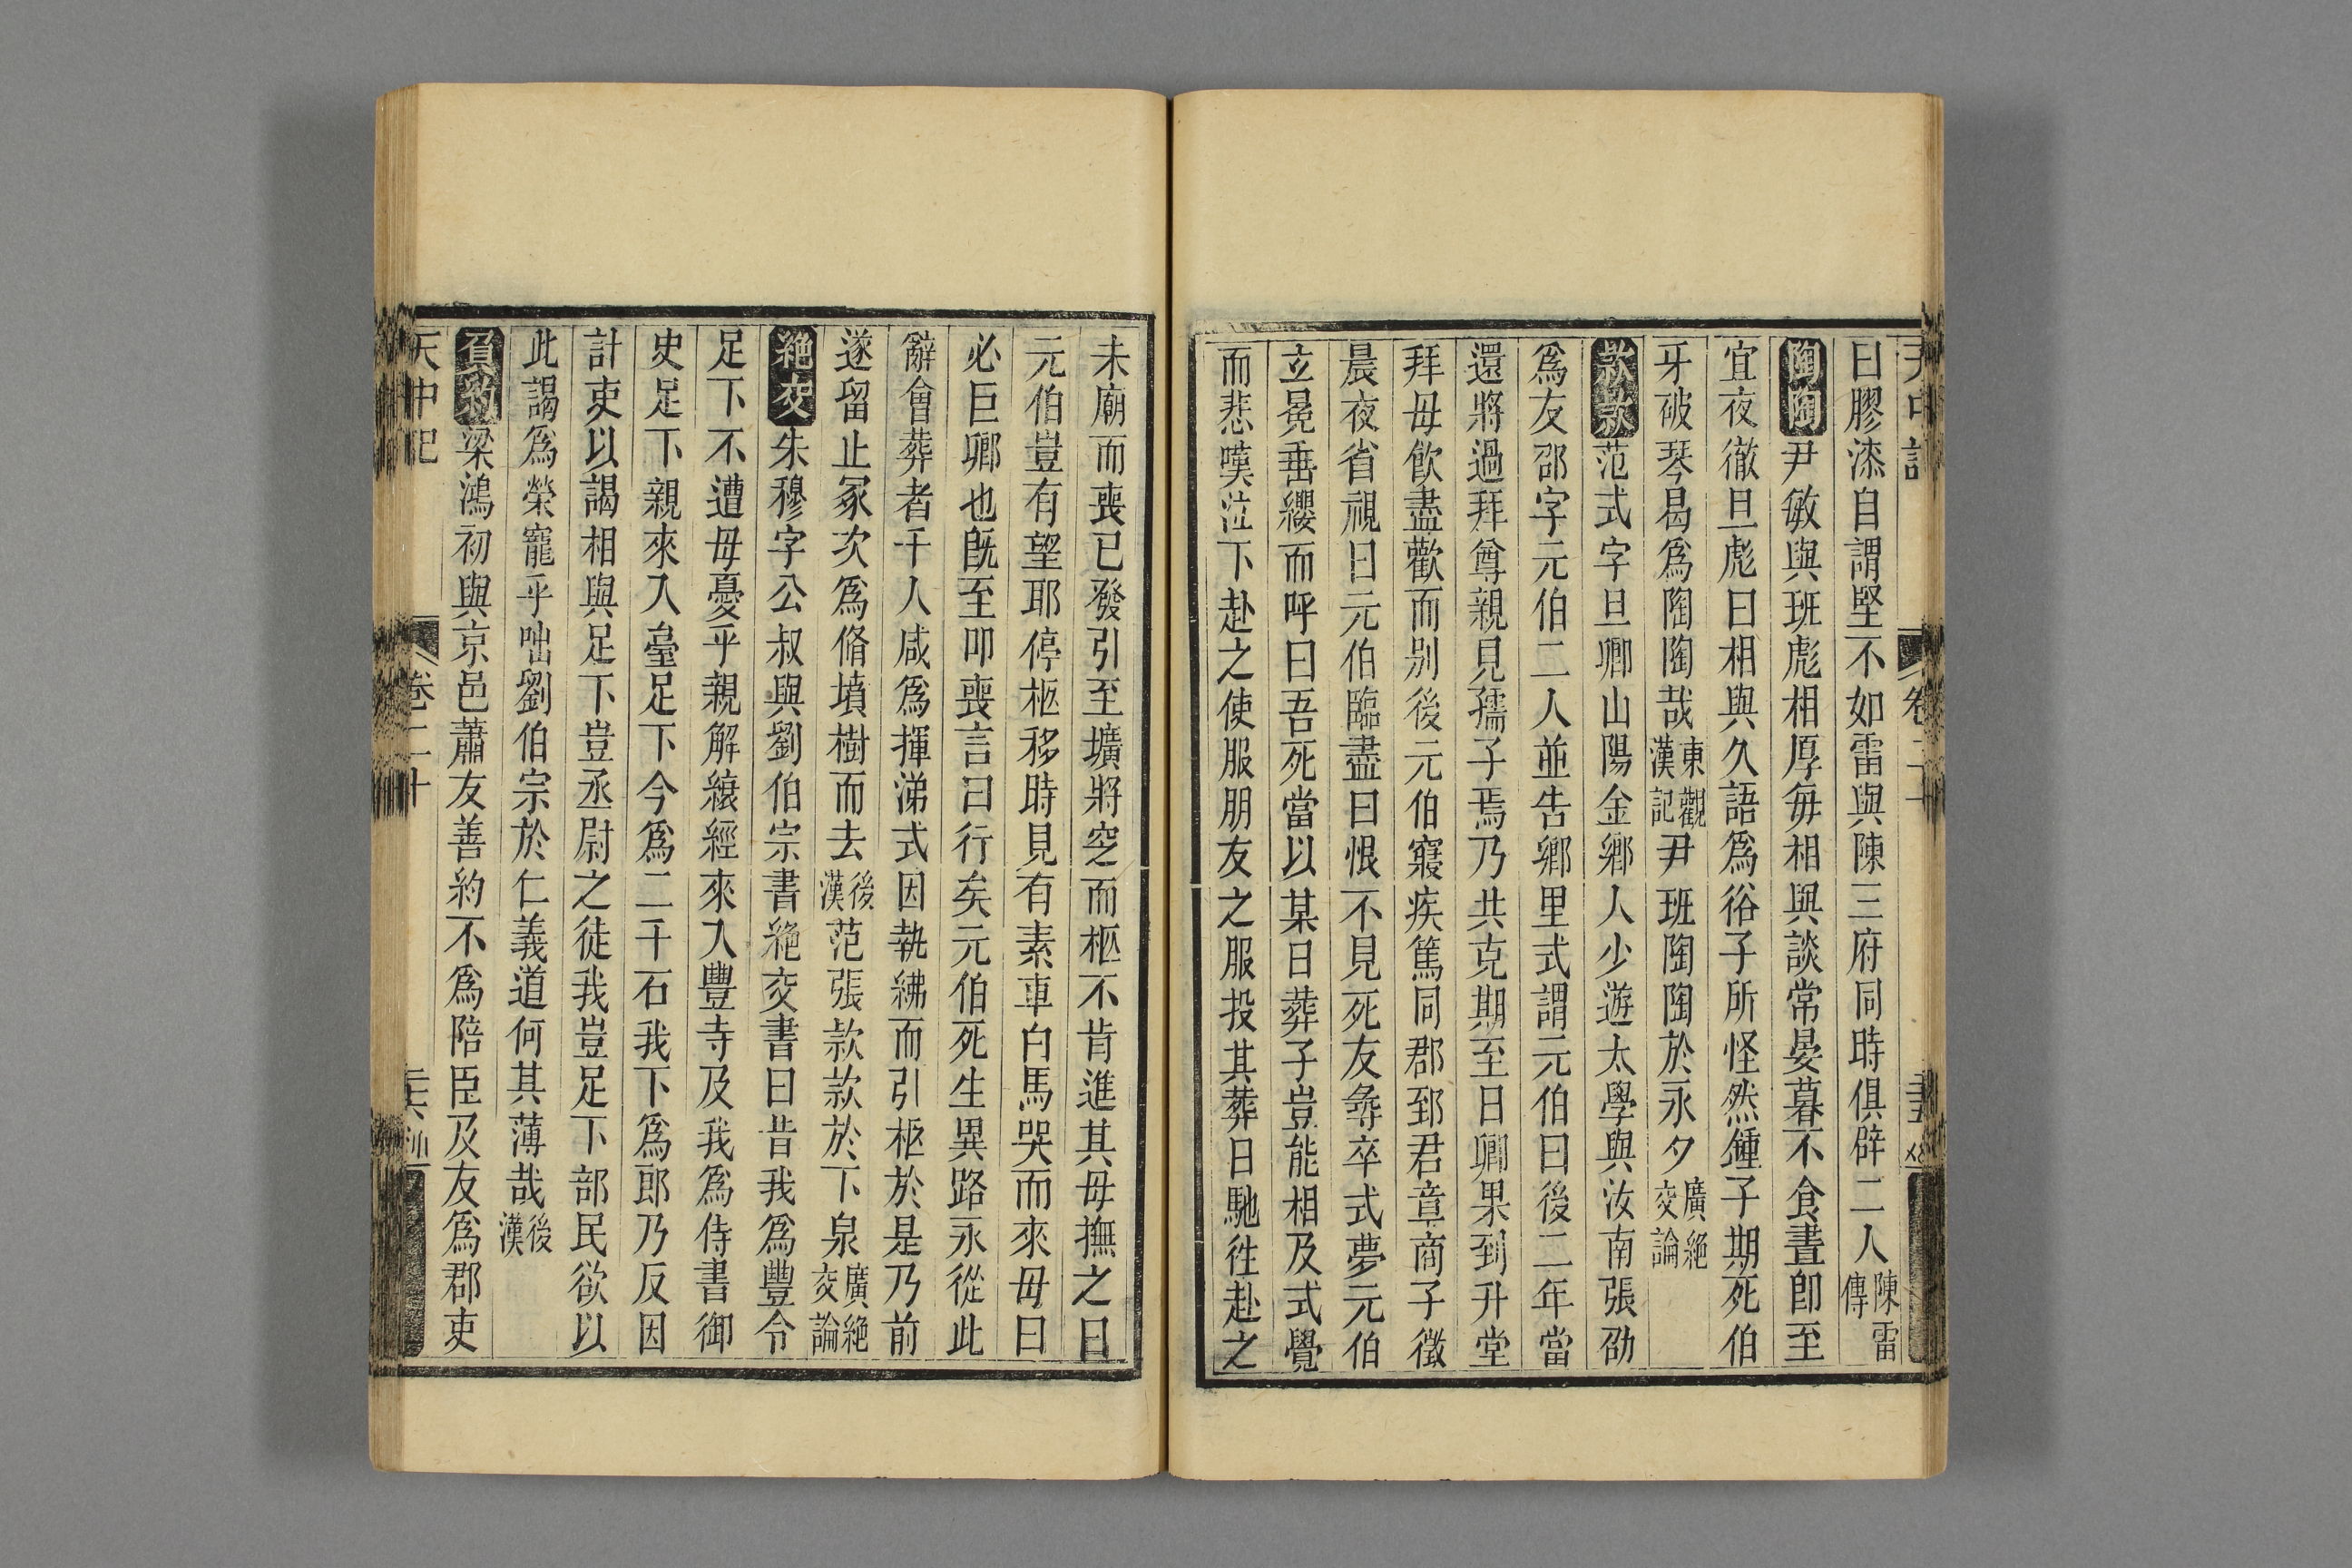 曰膠漆自謂堅不如雷與陳三府同時俱辟二人陳雷傳
陶陶尹敏與班彪相厚每相與談常晏暮不食晝卽至
宜夜徹旦彪曰相與久語爲俗子所怪然鍾子期死伯
牙破琴曷爲陶陶哉東觀漢記尹班陶陶於永夕廣絶交論
款款范式字巨卿山陽金鄉人少遊太學與汝南張劭
爲友邵字元伯二人並告鄉里式謂元伯曰後二年當
還將過拜尊親見孺子焉乃共克期至日卿果到升堂
拜母飲盡歡而别後元伯寢疾篤同郡郅君章商子徵
晨夜省視曰元伯臨盡曰恨不見死友尋卒式夢元伯
立冕垂纓而呼曰吾死當以某日葬子豈能相及式覺
而悲嘆泣下赴之使服朋友之服投其葬日馳徃赴之
未廟而喪已發引至壙將窆而柩不肯進其母撫之曰
元伯豈有望耶停柩移時見有素車白馬哭而來母曰
必巨卿也旣至叩喪言曰行矣元伯死生異路永從此
辭會葬者千人咸爲揮涕式因執紼而引柩於是乃前
遂留止冢次爲脩墳樹而去後漢范張款款於下泉廣絶交論
絶交朱穆字公叔與劉伯宗書絶交書曰昔我爲豐令
足下不遭母憂乎親解縗經來入豐寺及我爲侍書御
史足下親來入臺足下今爲二千石我下爲郎乃反因
計吏以謁相與足下豈丞尉之徒我豈足下部民欲以
此謁爲榮寵乎咄劉伯宗於仁義道何其薄哉後漢
負約梁鴻初與京邑蕭友善約不爲陪臣及友爲郡吏
天中記 卷二十